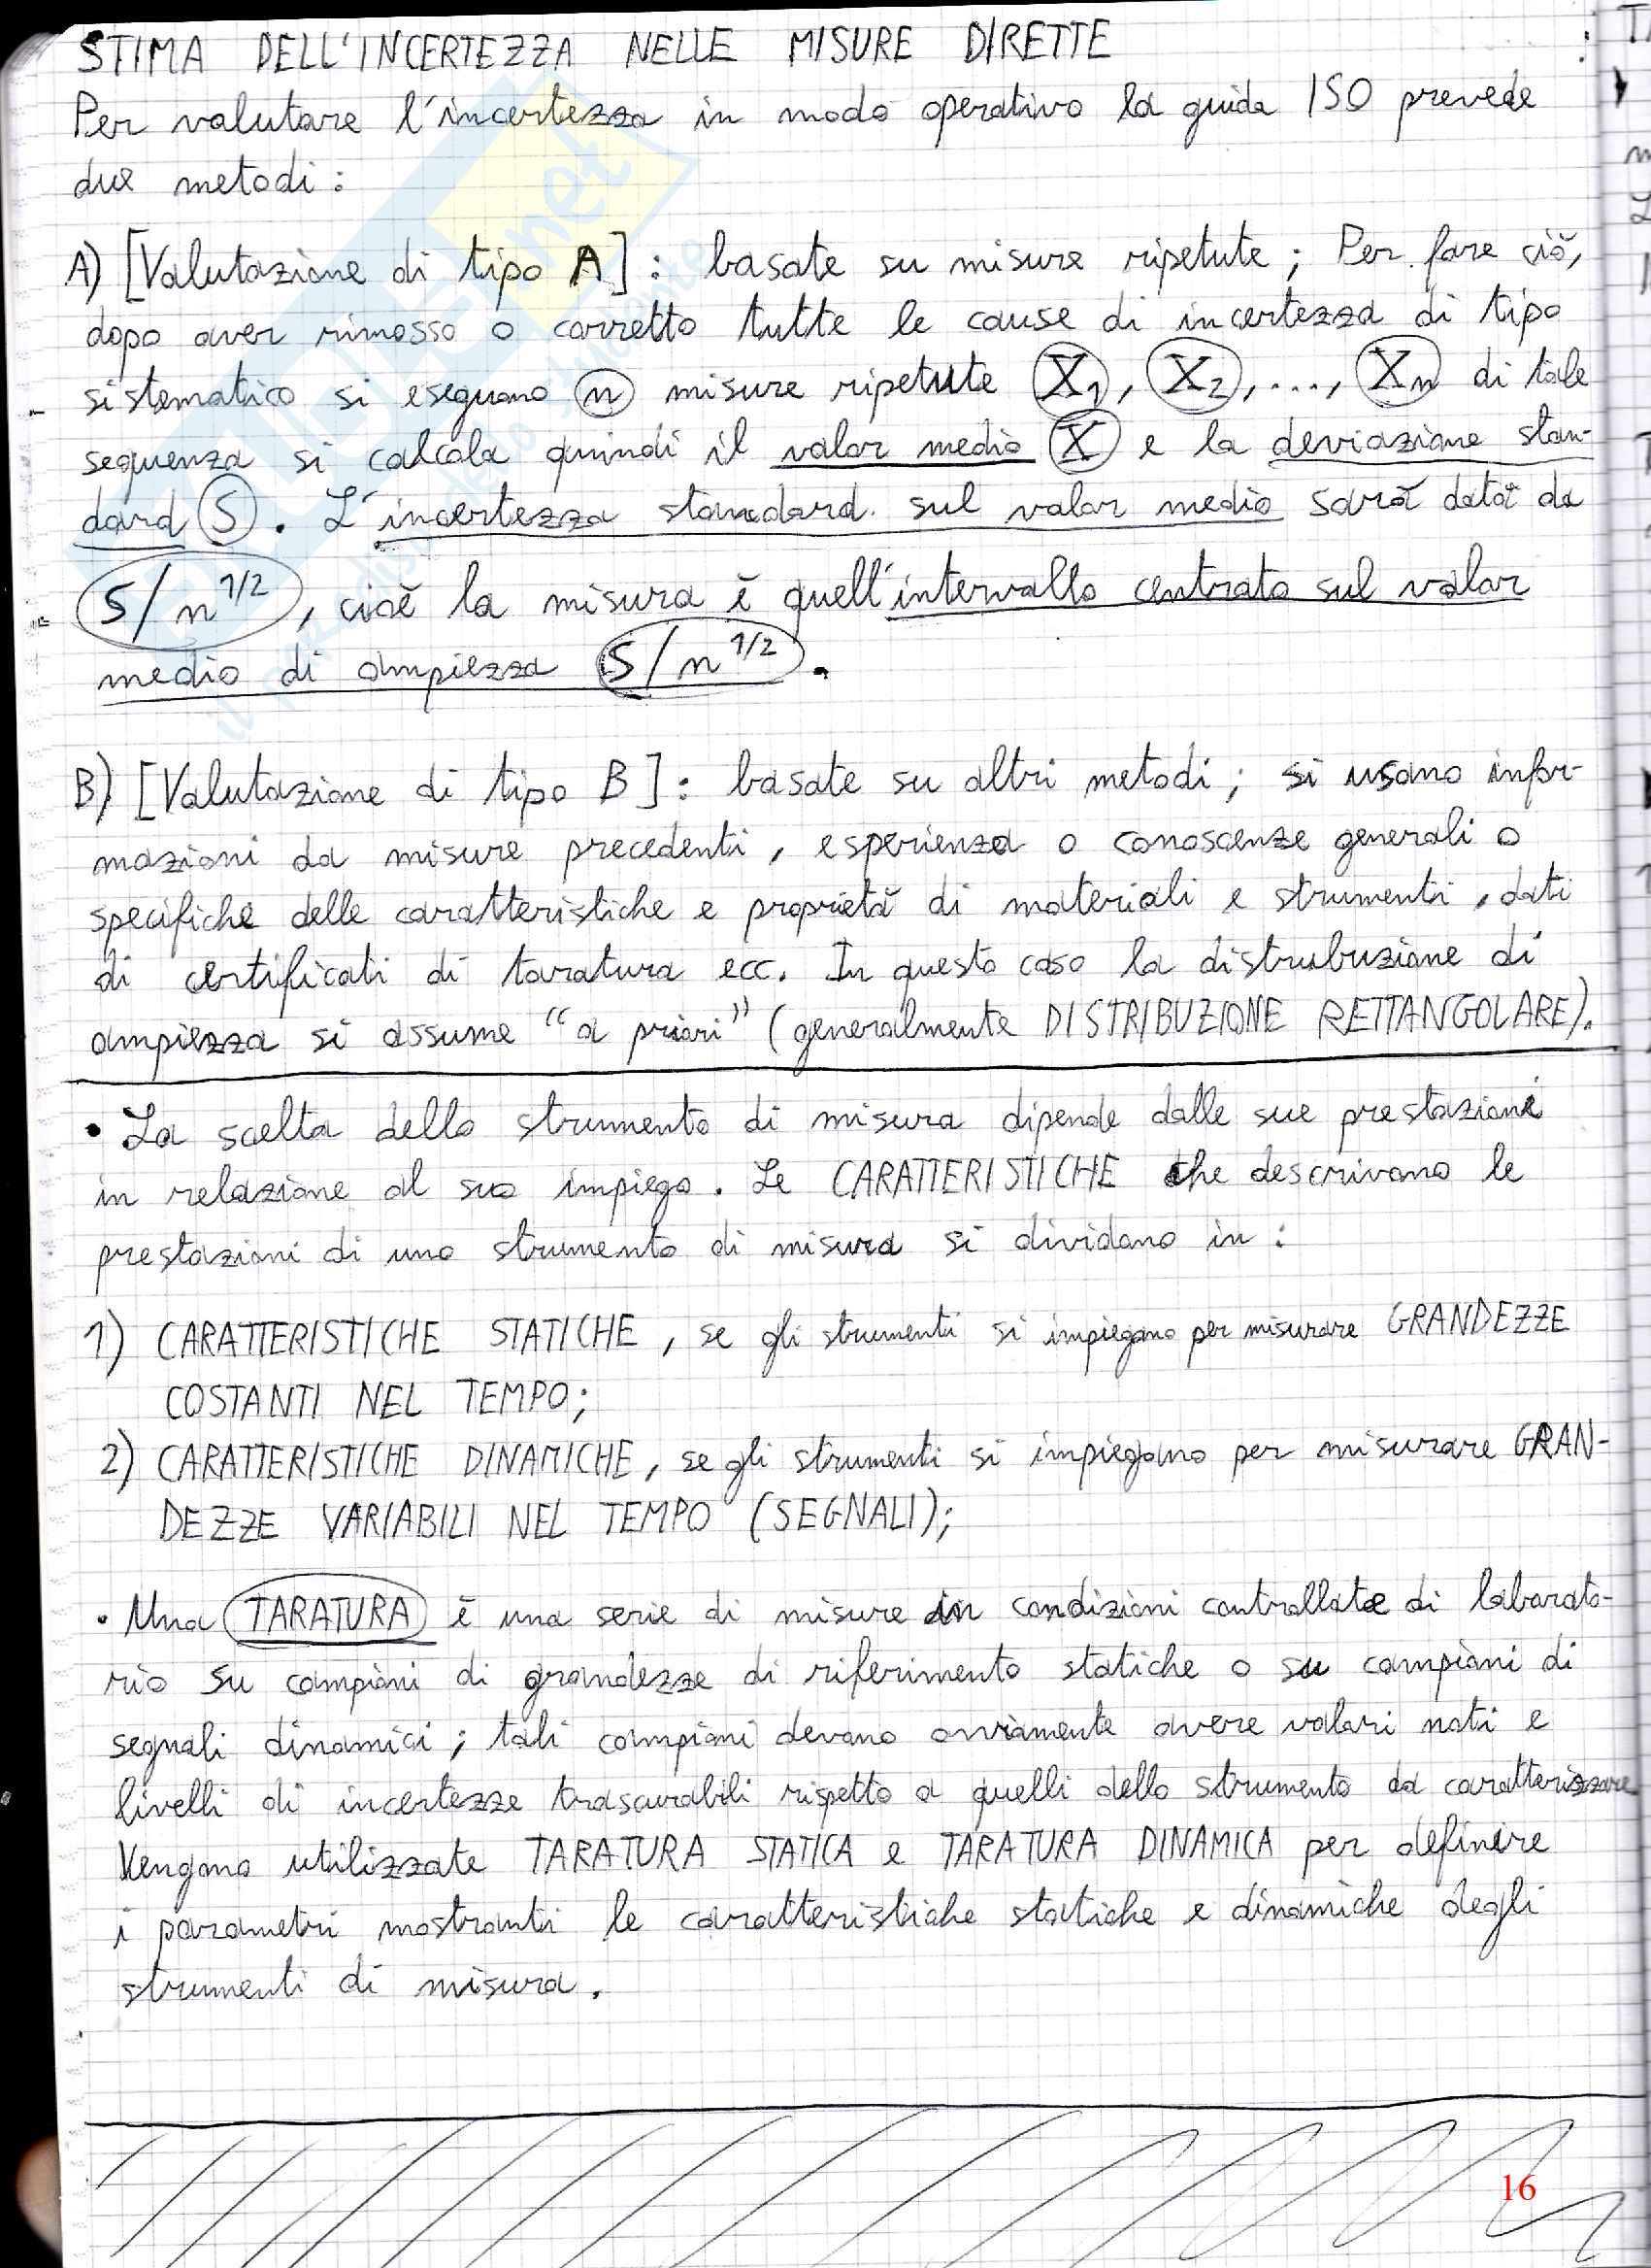 STIMA DELL'INCERTEZZA NELLE MISURE DIRETTE
Per valutare l'incertezza in modo operativo la guida ISO prevede
due metodi:
A) [Valutazione di tipo A]: basate su misure ripetute; Per fare ciò,
dopo aver rimosso o corretto tutte le cause di incertezza di tipo
sistematico si eseguono n misure ripetute X1, X2, ..., Xn di tale
sequenza si calcola quindi il valor medio X e la deviazione stan-
dard S. L'incertezza standard sul valor medio sarà data da
S/n^1/2, cioè la misura è quell'intervallo centrato sul valor
medio di ampiezza S/n^1/2.
B) [Valutazione di tipo B]: basate su altri metodi; si usano infor-
mazioni da misure precedenti, esperienza o conoscenze generali o
specifiche delle caratteristiche e proprietà di materiali e strumenti, dati
di certificati di taratura ecc. In questo caso la distrubuzione di
ampiezza si assume "a priori" (generalmente DISTRIBUZIONE RETTANGOLARE).
• La scelta dello strumento di misura dipende dalle sue prestazioni
in relazione al suo impiego. Le CARATTERISTICHE che descrivono le
prestazioni di uno strumento di misura si dividono in:
1) CARATTERISTICHE STATICHE, se gli strumenti si impiegano per misurare GRANDEZZE
COSTANTI NEL TEMPO;
2) CARATTERISTICHE DINAMICHE, se gli strumenti si impiegano per misurare GRAN-
DEZZE VARIABILI NEL TEMPO (SEGNALI);
• Una TARATURA è una serie di misure in condizioni controllate di laborato-
rio su campioni di grandezze di riferimento statiche o su campioni di
segnali dinamici; tali campioni devono ovviamente avere valori noti e
livelli di incertezze trascurabili rispetto a quelli dello strumento da caratterizzare
Vengono utilizzate TARATURA STATICA e TARATURA DINAMICA per definire
i parametri mostranti le caratteristiche statiche e dinamiche degli
strumenti di misura.
16